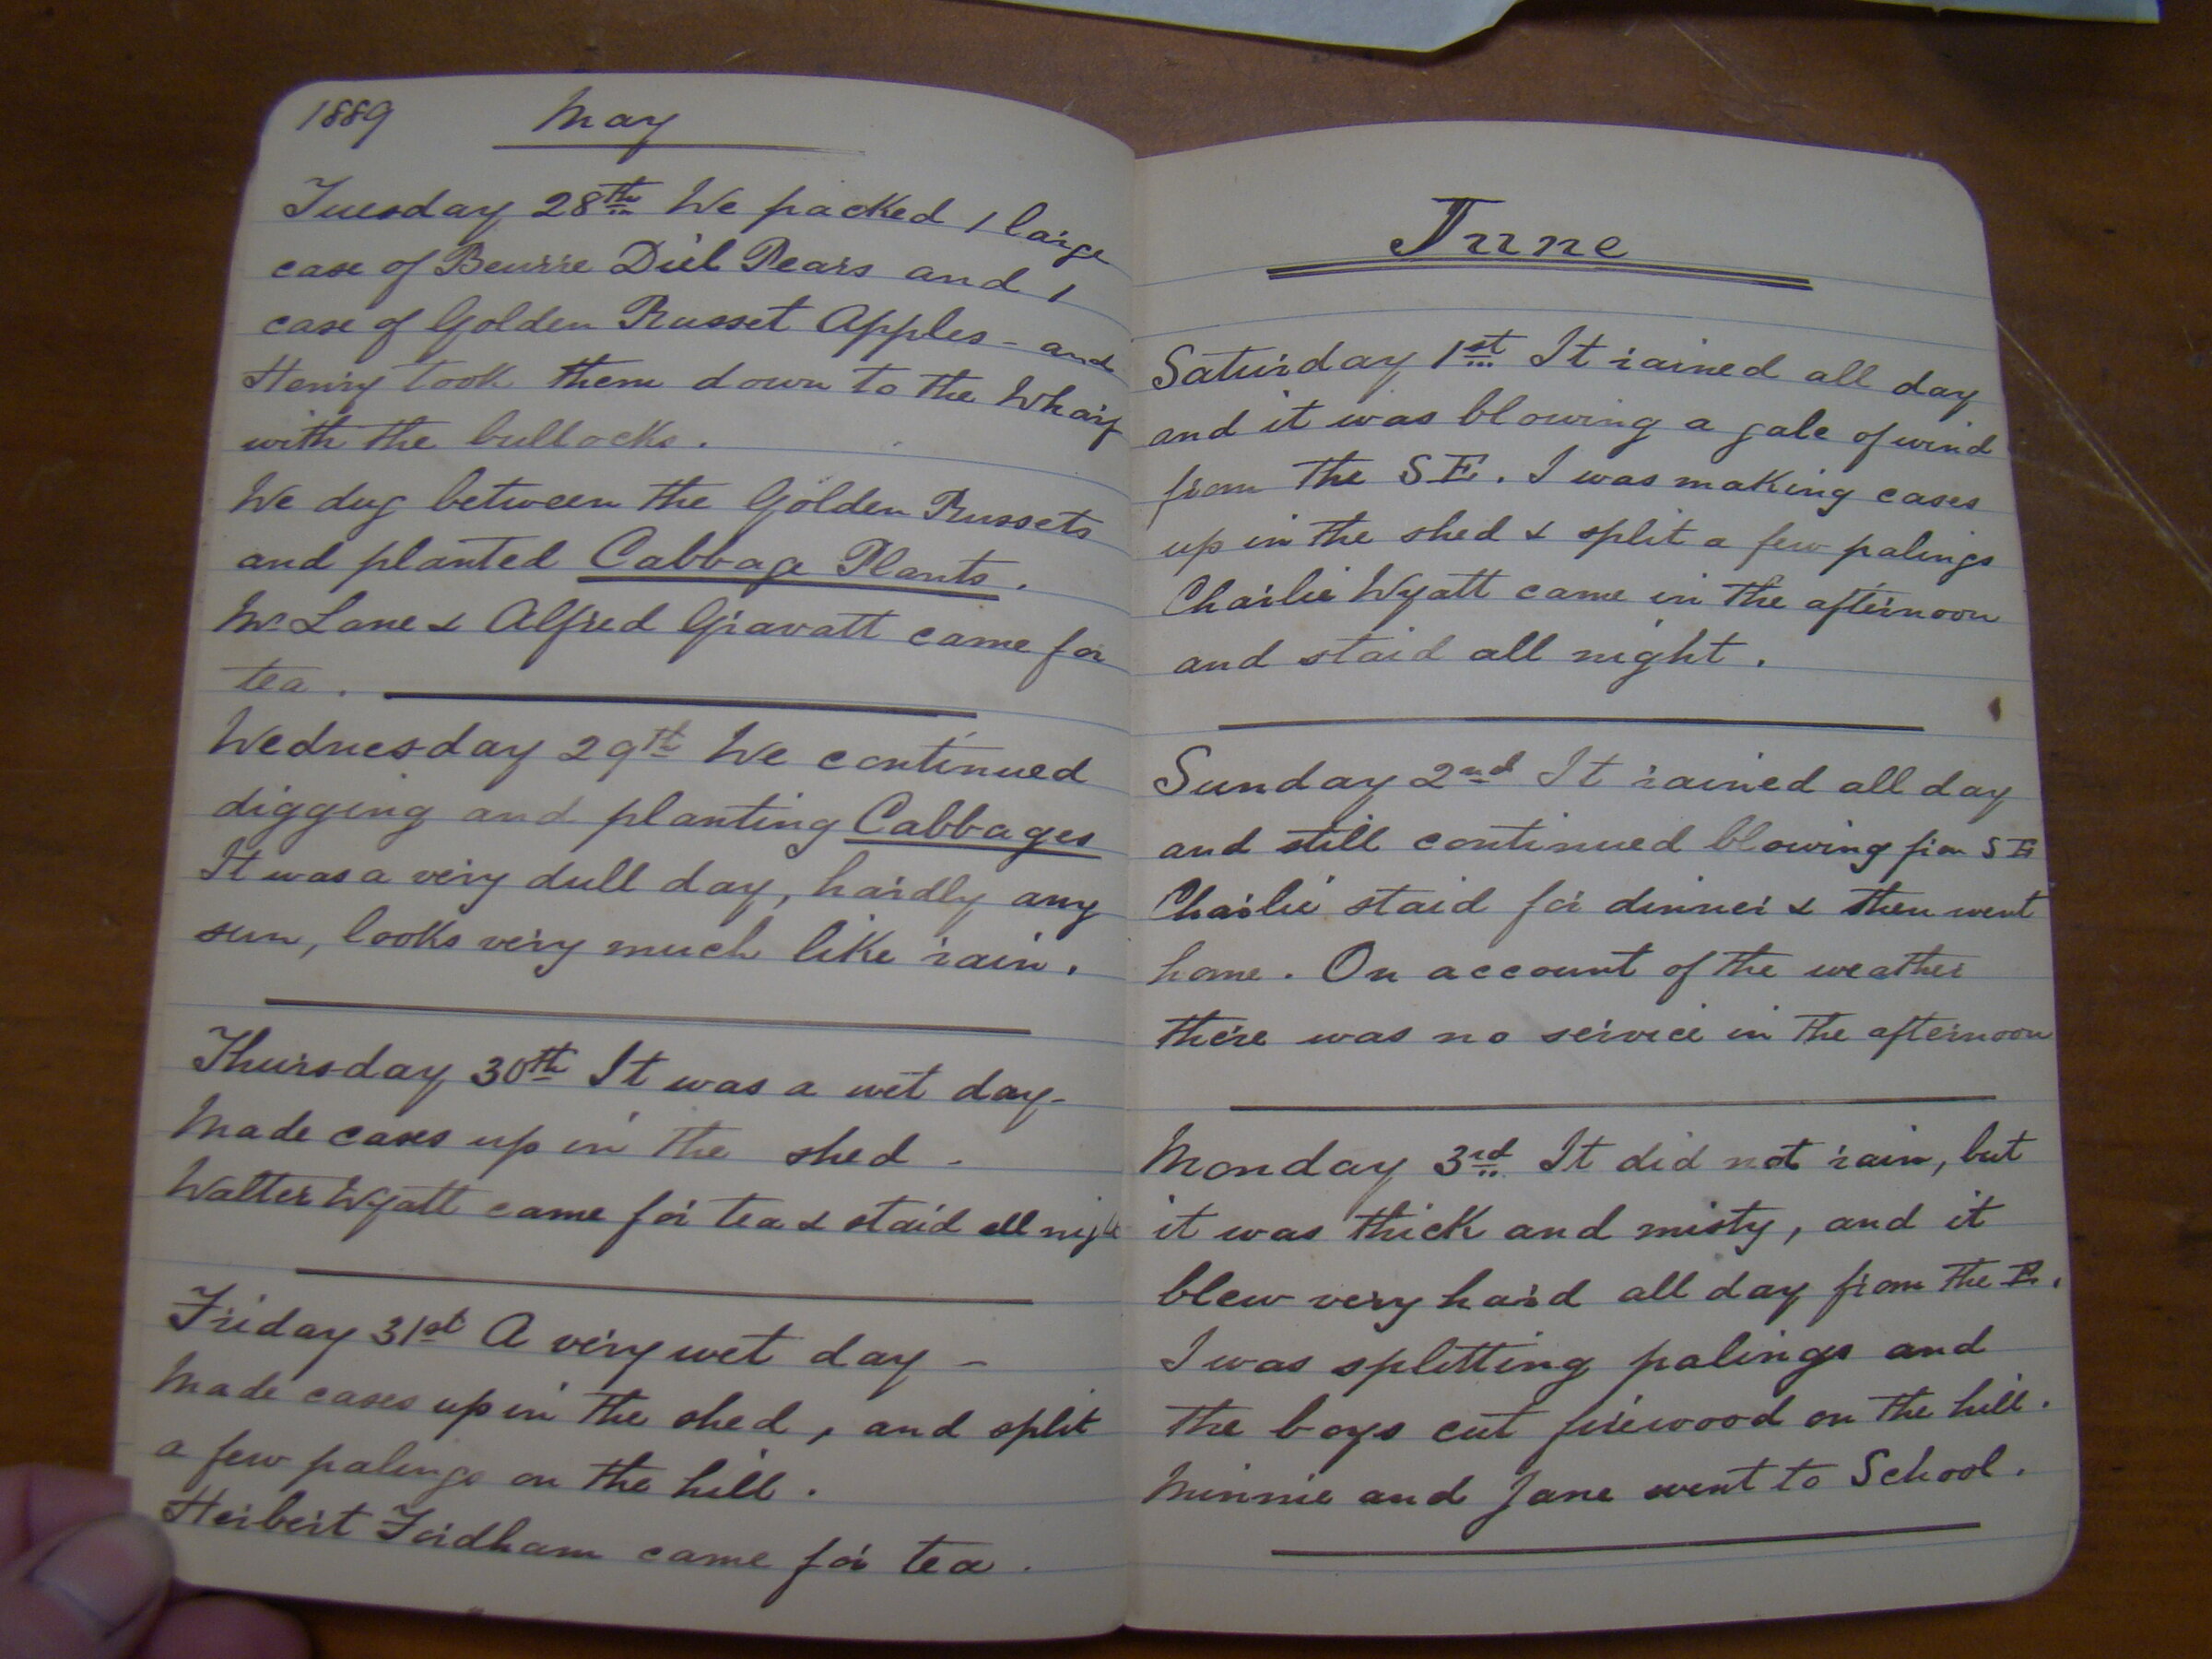 1889 May
Tuesday 28th We packed 1 large
case of Beurre Diel Pears and 1
case of Golden Russet Apples - and
Henry took them down to the Wharf
with the bullocks.
We dug between the Golden Russets
and planted Cabbage Plants.
Mr Lane & Alfred Gravatt came for
tea.
Wednesday 29th We continued
digging and planting Cabbages
It was a very dull day, hardly any
sun, looks very much like rain.
Thursday 30th It was a wet day-
Made cases up in the shed -
Walter Wyatt came for tea & staid all night
Friday 31st A very wet day -
Made cases up in the shed, and split
a few palings on the hill.
Herbert Fordham came for tea.
June
Saturday 1st It rained all day
and it was blowing a gale of wind
from the SE. I was making cases
up in the shed & split a few palings
Charlie Wyatt came in the afternoon
and staid all night.
Sunday 2nd It rained all day
and still continued blowing from SE
Charlie staid for dinner & then went
home. On account of the weather
there was no service in the afternoon
Monday 3rd It did not rain, but
it was thick and misty, and it
blew very hard all day from the E.
I was splitting palings and
the boys cut firewood on the hill.
Minnie and Jane went to School.